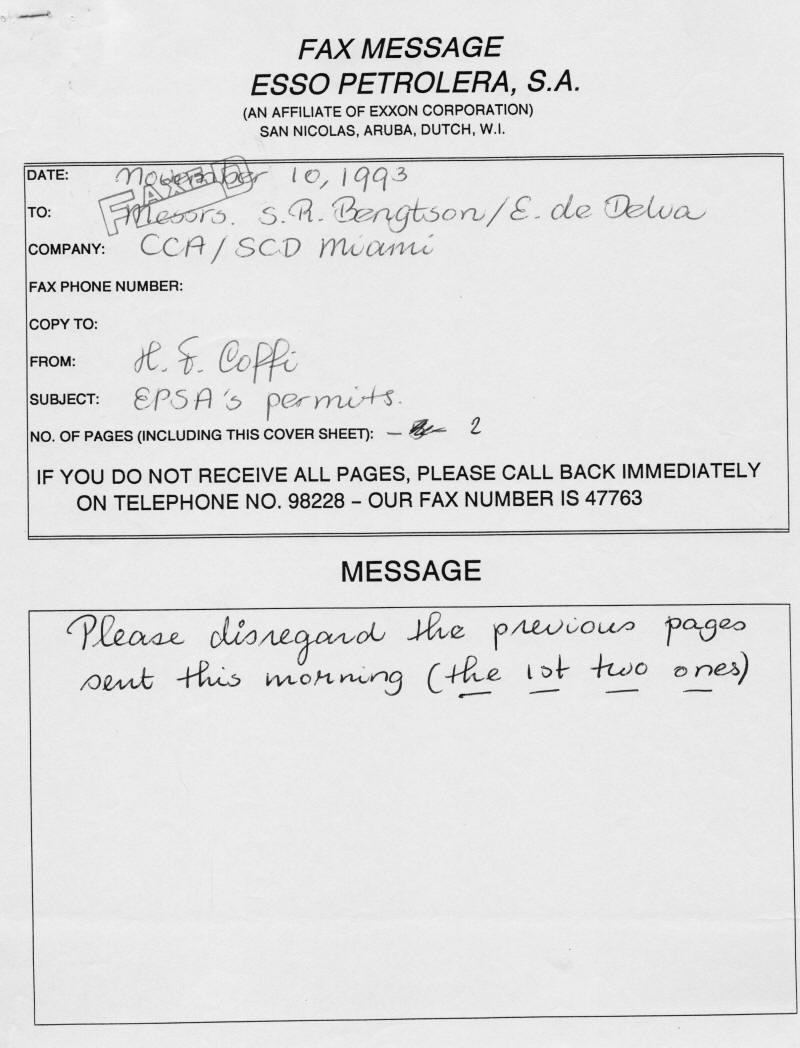 FAX MESSAGE
ESSO PETROLERA, S.A.
(AN AFFILIATE OF EXXON CORPORATION)
SAN NICOLAS, ARUBA, DUTCH, W.I.
DATE: November 10, 1993
FAXED
TO: Messrs. S.R. Bengtson/E. de Delva
COMPANY: CCA/SCD Miami
FAX PHONE NUMBER:
COPY TO:
FROM: H. F. Coffi
SUBJECT: EPSA's permits.
NO. OF PAGES (INCLUDING THIS COVER SHEET): 2
IF YOU DO NOT RECEIVE ALL PAGES, PLEASE CALL BACK IMMEDIATELY
ON TELEPHONE NO. 98228 – OUR FAX NUMBER IS 47763
MESSAGE
Please disregard the previous pages
sent this morning (the 1st two ones)